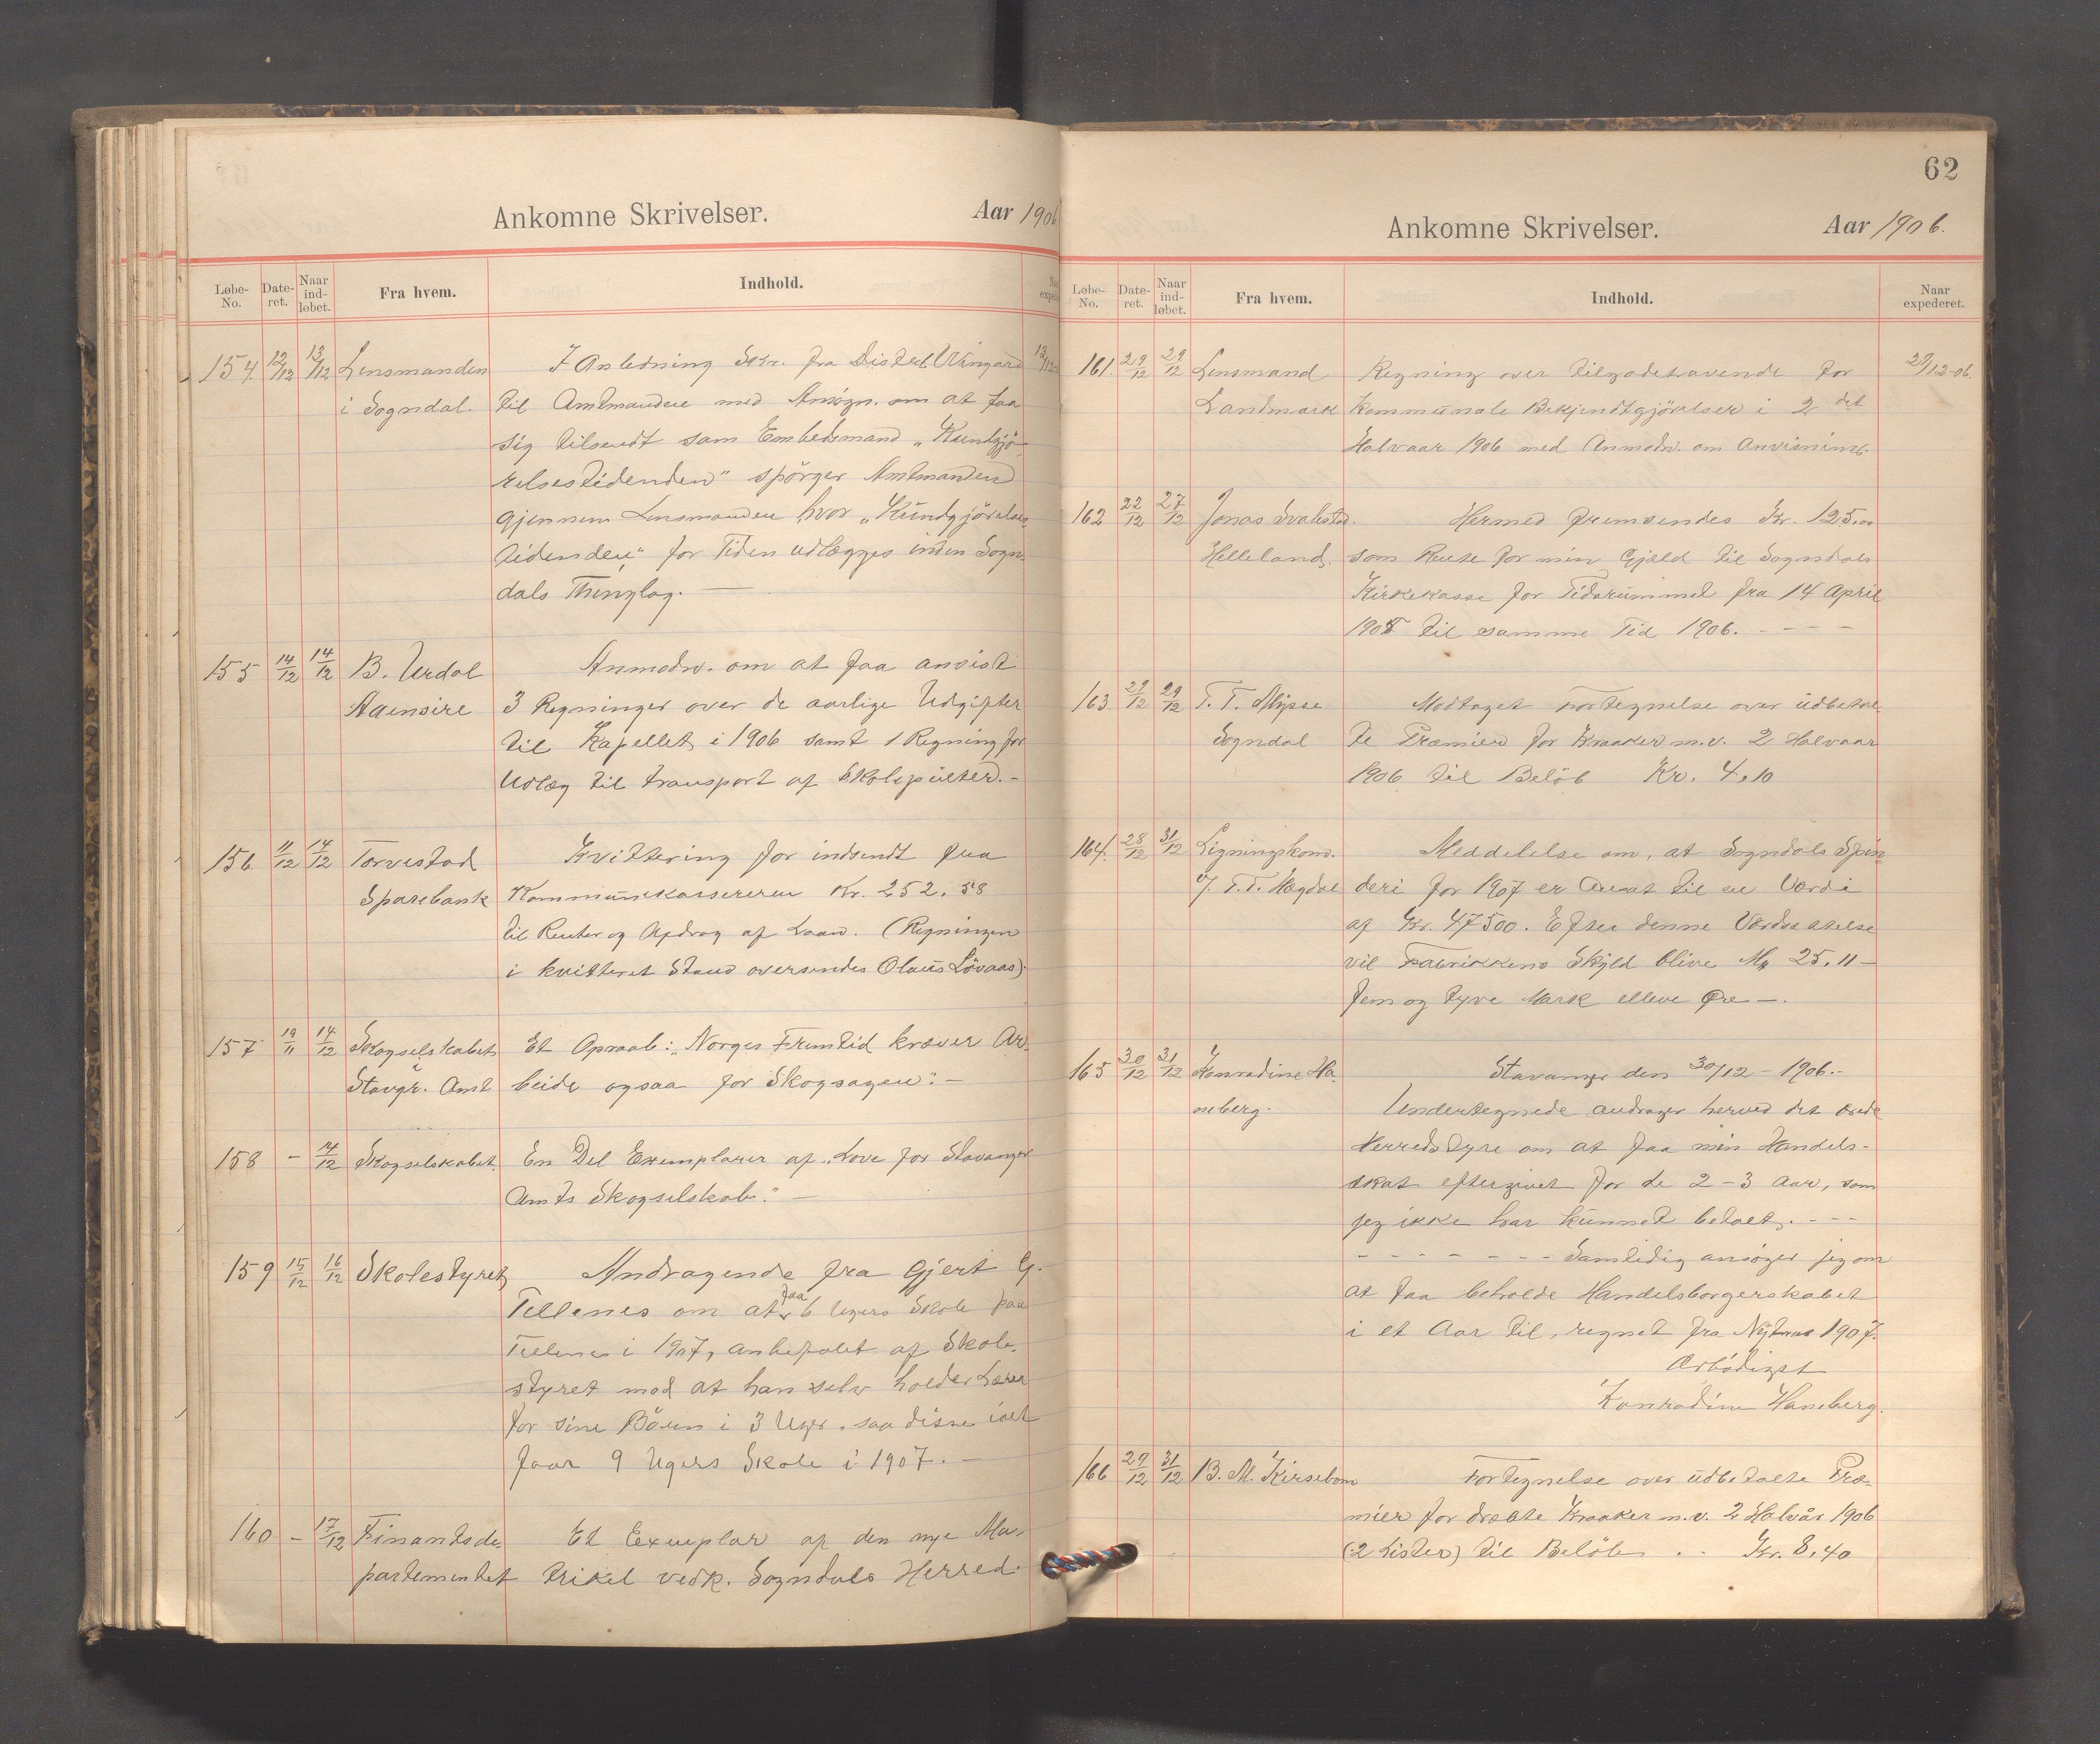 Ankomne Skrivelser. Aar 1906
Løbe-No. Date-ret. Naar ind-løbet. Fra hvem. Indhold.
154. 12/12 13/12 Lensmanden i Sogndal. I Anledning Skr. fra
til Amtmanden med Ansøgn. om at faa
sig tilsendt som Embedsmand „Kundgjø-
relsestidenden" spörger Amtmanden
gjennem Lensmanden hvor „Kündgjörelses
tidenden", for Tiden udlægges inden Sogn-
dals Thinglag. —
155 14/12 14/12 B. Urdal Aaensire Anmodn. om at faa anvist
3 Regninger over de aarlige Udgifter
til Kapellet i 1906 samt 1 Regning for
Udlæg til transport af Skolepülter. –
156 11/12 14/12 Torvestad Sparebank Kvittering for indsendt fra
Kommünekassereren Kr. 252.58
til Renter og Afdrag af Laan. (Regningen
i kvitteret Stand oversendes Olaüs Lövaas).
157 19/11 14/12 Skogselskabet Stavgr. Amt Et Opraab: „Norges Fremtid kræver Ar-
beide ogsaa for Skogsagen". –
158 – 14/12 Skogselskabet. En Del Exemplarer af „Love for Stavanger
Amts Skogselskab." —
159 15/12 16/12 Skolestyret Andragende fra Gjert G.
Tellenes om at faa 6 Ugers Skole paa
Tellenes i 1907, anbefalet af Skole-
styret mod at han selv holder Lærer
for sine Börn i 3 Uger. saa disse ialt
faar 9 Ugers Skole i 1907. –
160 – 17/12 Finantsde- partementet Et Exemplar af den nye Ma-
trikel vedk. Sogndals Herred.
62
Ankomne Skrivelser. Aar 1906.
Løbe-No. Date-ret. Naar ind-løbet. Fra hvem. Indhold. Naar expederet.
161. 29/12 29/12 Lensmand Landmark Regning over tilgodehavende for 29/12-06.
Kommunale Bekjendtgjörelser i 2det
Halvaar 1906 med Anmodn. om Anvisning.
162 22/12 27/12 Jonas Helleland. Hermed fremsendes Kr. 125.00
som Rente for min Gjæld til Sogndals
Kirkekasse for Tidsrümmet fra 14 April
1905 til samme Tid 1906. - - - -
163. 29/12 29/12 T. T. Mysse Sogndal Modtaget Fortegnelse over üdbetal-
te Præmier for Kraaker m.v. 2 Halvaar
1906 til Belöb Kr. 4,10
164. 28/12 31/12 Ligningskom. v/ T. T. Meddelelse om, at Sogndals Spin-
deri for 1907 er Ansat til en Værdi
af Kr. 47500. Efter denne Værdsættelse
vil Fabrikkens Skyld blive Mk 25.11 –
fem og tyve Mark elleve Øre –.
165 30/12 31/12 Konradine Ha- neberg. Stavanger den 30/12 – 1906. –
Undertegnede andrager herved det ærede
Herredstyre om at faa min Handels-
skat eftergivet for de 2 – 3 Aar, som
jeg ikke har künnet betalt. - - -
- - - - - - - Samtidig ansöger jeg om
at faa beholde Handelsborgerskabet
i et Aar til, regnet fra Nytaar 1907.
Ærbödigst
Konradine Haneberg.
166 29/12 31/12 B. M. Kirsebom Fortegnelse over üdbetalte Præ-
mier for dræbte Kraaker m.v. 2 Halvår 1906
(2 Lister) til Belöb . . Kr. 8,40